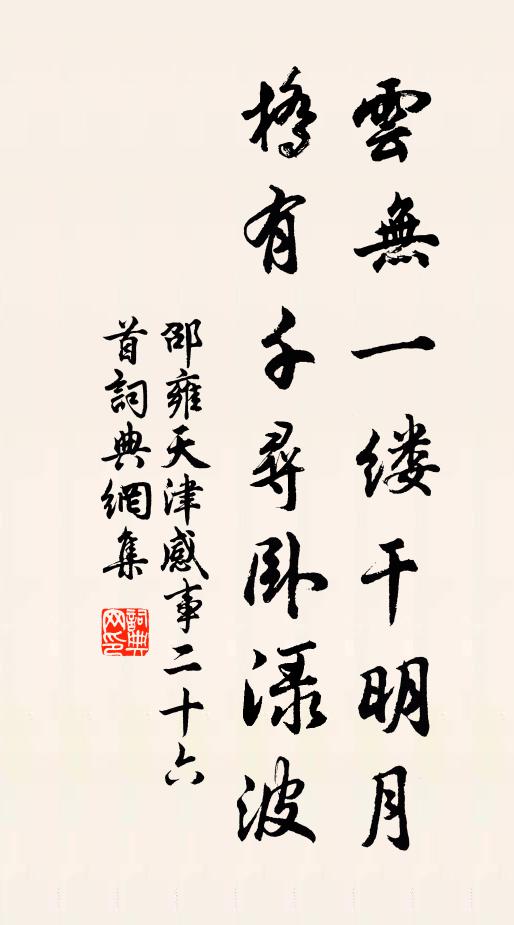 雲無一縷干明月
橋有千尋臥渌波
邵雍天津感事二十六
首詞典網集
詞典網印